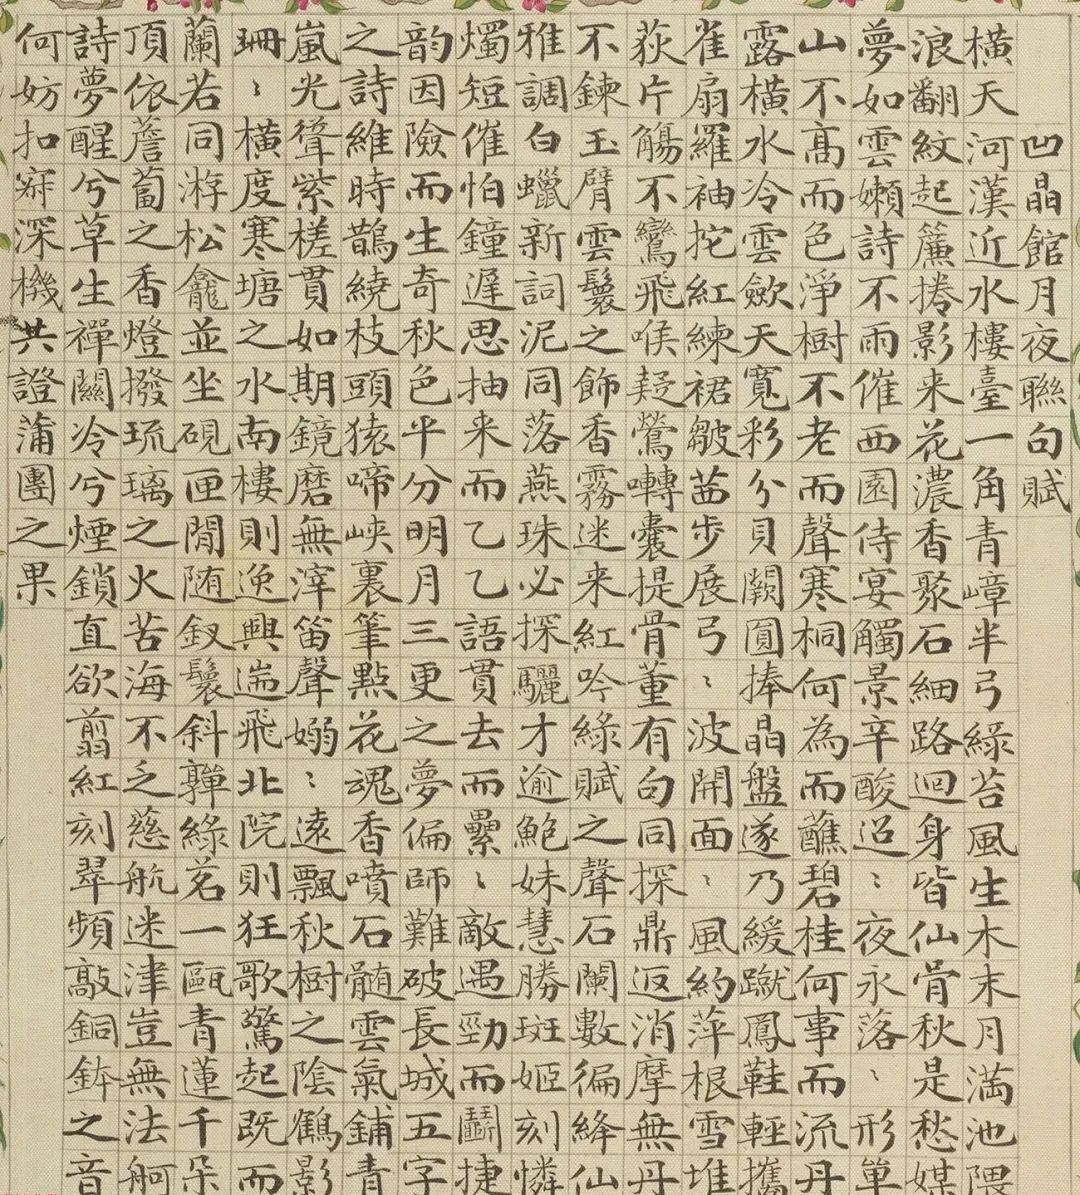 凹晶館月夜聯句賦
橫天河漢近水樓臺一角青嶂半弓綠苔風生木末月滿池隈
浪翻紋起簾捲影来花濃香聚石細路迴身皆仙骨秋是愁媒
夢如雲嬾詩不雨催西園侍宴觸景辛酸迢〻夜永落〻形單
山不高而色淨樹不老而聲寒桐何為而蘸碧桂何事而流丹
露橫水冷雲歛天寬彩分貝闕圓捧晶盤遂乃緩蹴鳳鞋輕攜
雀扇羅袖拕紅練裙皺茜步展弓〻波開面〻風約萍根雪堆
荻片觴不鸞飛喉疑鶯囀囊提骨董有句同探鼎返消摩無丹
不鍊玉臂雲鬟之飾香霧迷来紅吟綠賦之聲石闌數徧絳仙
雅調白蠟新詞泥同落燕珠必探驪才逾鮑妹慧勝斑姬刻憐
燭短催怕鐘遲思抽来而乙乙語貫去而纍〻敵遇勁而鬭捷
韵因險而生奇秋色平分明月三更之夢偏師難破長城五字
之詩維時鵲繞枝頭猿啼峽裏筆點花魂香噴石髄雲氣鋪青
嵐光聳紫槎貫如期鏡磨無滓笛聲嫋〻遠飄秋樹之陰鶴影
珊〻橫度寒塘之水南樓則逸興遄飛北院則狂歌驚起既而
蘭若同游松龕並坐硯匣閒随釵鬟斜嚲綠茗一甌青蓮千朵
頂依薝蔔之香燈撥琉璃之火苦海不乏慈航迷津豈無法舸
詩夢醒兮草生禪關冷兮煙鎖直欲翦紅刻翠頻敲銅鉢之音
何妨扣寂深機共證蒲團之果